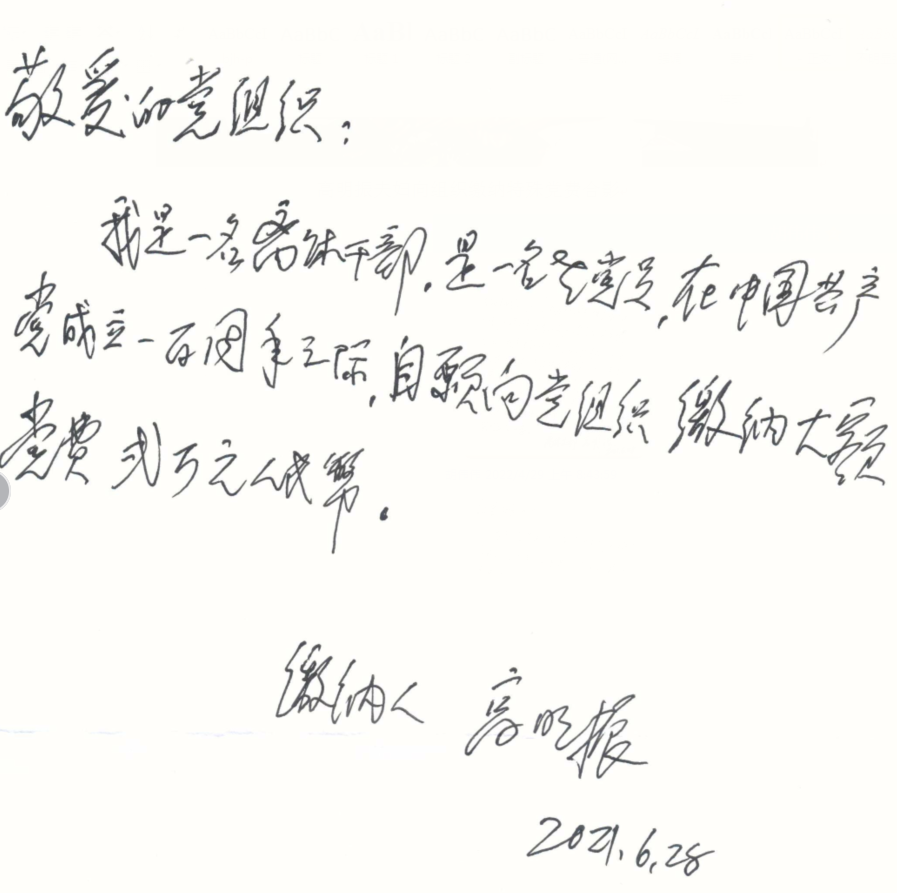 敬爱的党组织:
我是一名离休干部,是一名老党员,在中国共产
党成立一百周年之际,自愿向党组织缴纳大额
党费贰万元人民币。
缴纳人 高明振
2021.6.28